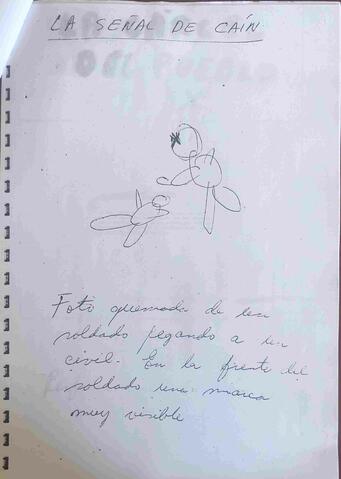 LA SEÑAL DE CAÍN
Foto quemada de un
soldado pegando a un
civil. En la frente del
soldado una marca
muy visible